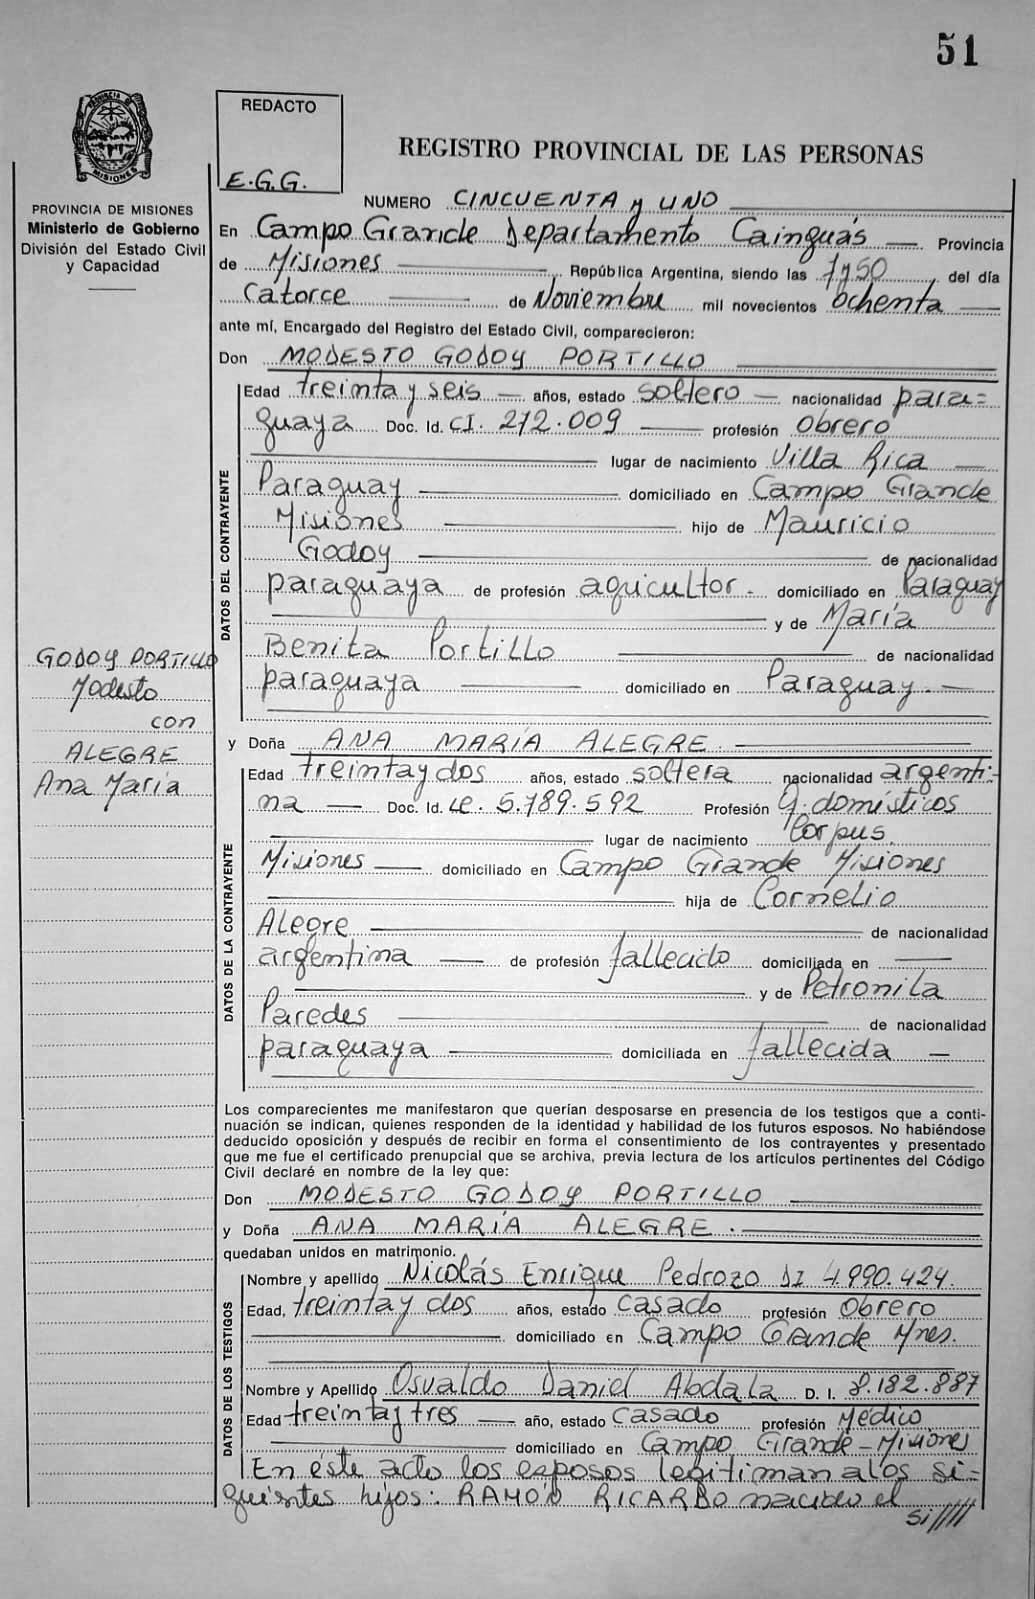 51
PROVINCIA DE
MISIONES
REDACTO
E.G.G.
REGISTRO PROVINCIAL DE LAS PERSONAS
PROVINCIA DE MISIONES
Ministerio de Gobierno
División del Estado Civil
y Capacidad
NUMERO CINCUENTA y UNO
En Campo Grande Departamento Cainguás — Provincia
de Misiones — República Argentina, siendo las 7y50 del día
Catorce — de Noviembre mil novecientos ochenta —
ante mí, Encargado del Registro del Estado Civil, comparecieron:
Don MODESTO GODOY PORTILLO
DATOS DEL CONTRAYENTE
Edad treinta y seis — años, estado soltero — nacionalidad para=
guaya Doc. Id. CI. 272.009 — profesión obrero
— lugar de nacimiento Villa Rica —
Paraguay — domiciliado en Campo Grande
Misiones — hijo de Mauricio
Godoy — de nacionalidad
paraguaya de profesión agricultor. domiciliado en Paraguay
— y de María
Benita Portillo — de nacionalidad
paraguaya — domiciliado en Paraguay. —
GODOY PORTILLO
Modesto
con
ALEGRE
Ana María
y Doña ANA MARÍA ALEGRE. —
DATOS DE LA CONTRAYENTE
Edad treinta y dos años, estado soltera nacionalidad argenti-
na — Doc. Id. LE. 5.789.592 Profesión q. domésticos
— lugar de nacimiento Corpus.
Misiones — domiciliado en Campo Grande Misiones
— hija de Cornelio
Alegre — de nacionalidad
argentina — de profesión fallecido domiciliada en —
— y de Petronila
Paredes — de nacionalidad
paraguaya — domiciliada en fallecida —
Los comparecientes me manifestaron que querían desposarse en presencia de los testigos que a conti-
nuación se indican, quienes responden de la identidad y habilidad de los futuros esposos. No habiéndose
deducido oposición y después de recibir en forma el consentimiento de los contrayentes y presentado
que me fue el certificado prenupcial que se archiva, previa lectura de los artículos pertinentes del Código
Civil declaré en nombre de la ley que:
Don MODESTO GODOY PORTILLO —
y Doña ANA MARÍA ALEGRE. —
quedaban unidos en matrimonio.
DATOS DE LOS TESTIGOS
Nombre y apellido Nicolás Enrique Pedrozo DI 4.990.424.
Edad, treinta y dos años, estado casado profesión obrero
— domiciliado en Campo Grande Mnes.
Nombre y Apellido Osvaldo Daniel Abdala D. I. 8.182.887
Edad treinta y tres — año, estado casado profesión Médico
— domiciliado en Campo Grande - Misiones
En este acto los esposos legitiman a los si=
guientes hijos: RAMÓN RICARDO nacido el
si/////